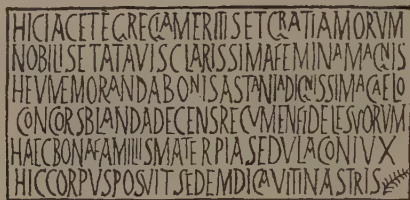 HICIACETEGREGIAMERITISETGRATIAMORVM
NOBILISETATAVISCLARISSIMAFEMINAMAGNIS
HEVMEMORANDABONISASTANIADIGNISSIMACAELO
CONCORSBLANDADECENSRECVMENFIDELESVORVM
HAECBONAFAMILIISMATERPIASEDVLACONIVX
HICCORPVSPOSVITSEDEMDICAVITINASTRIS